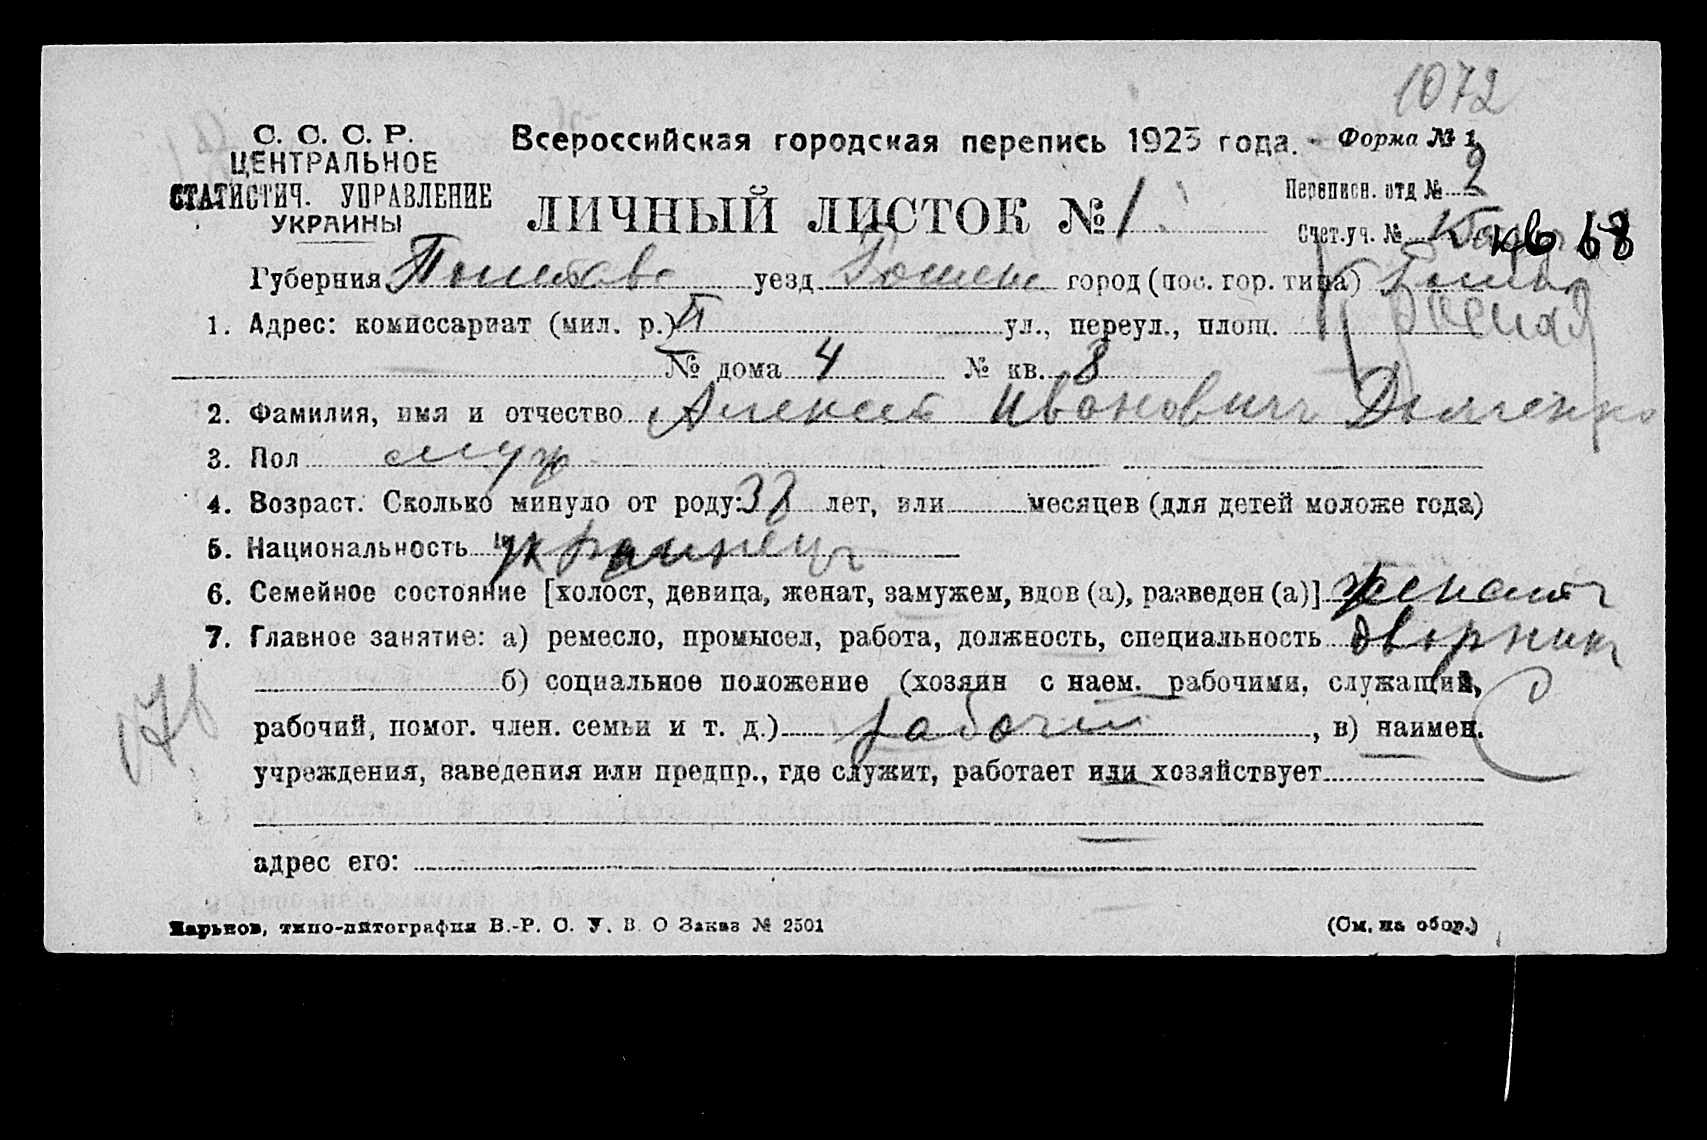 1072
С. С. С. Р.
ЦЕНТРАЛЬНОЕ
СТАТИСТИЧ. УПРАВЛЕНИЕ
УКРАИНЫ
Всероссийская городская перепись 1923 года. - Форма № 1
ЛИЧНЫЙ ЛИСТОК № 1
Переписн. отд № 2
Счет.уч. № кв 68
Губерния Полтавс уезд город (пос. гор. типа)
1. Адрес: комиссариат (мил. р.) II ул., переул., площ.
№ дома 4 № кв. 8
2. Фамилия, имя и отчество Алексей Иванович
3. Пол муж
4. Возраст. Сколько минуло от роду: 38 лет, или месяцев (для детей моложе года)
5. Национальность украинец
6. Семейное состояние [холост, девица, женат, замужем, вдов (а), разведен (а)] женатъ
7. Главное занятие: а) ремесло, промысел, работа, должность, специальность дворник
б) социальное положение (хозяин с наем. рабочими, служащий,
рабочий, помог. член. семьи и т. д.) рабочий , в) наимен.
учреждения, заведения или предпр., где служит, работает или хозяйствует
адрес его:
Харьков, типо-литография В.-Р. С. У. В. О Заказ № 2501
(См. на обор.)